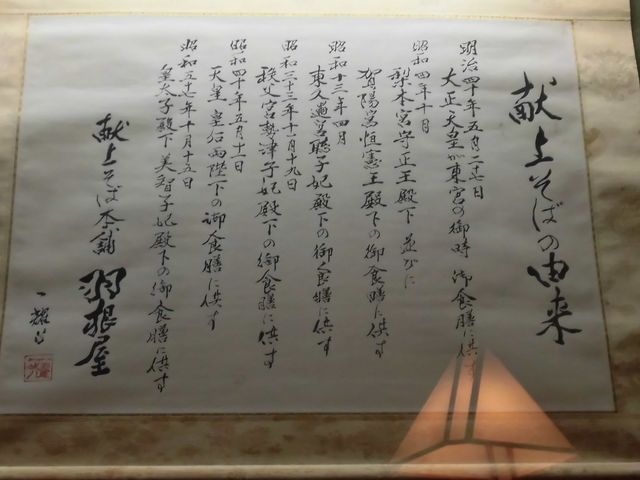 献上そばの由来
明治四十年五月二十七日
大正天皇が東宮の御時 御食膳に供す
昭和四年十月
梨本宮守正王殿下 並びに
賀陽宮恒憲王殿下の御食膳に供す
昭和十三年四月
東久邇宮聡子妃殿下の御食膳に供す
昭和三十三年十一月十九日
秩父宮勢津子妃殿下の御食膳に供す
昭和四十年五月十一日
天皇 皇后両陛下の御食膳に供す
昭和五十三年十月十五日
皇太子殿下 美智子妃殿下の御食膳に供す
献上そば本舗 羽根屋